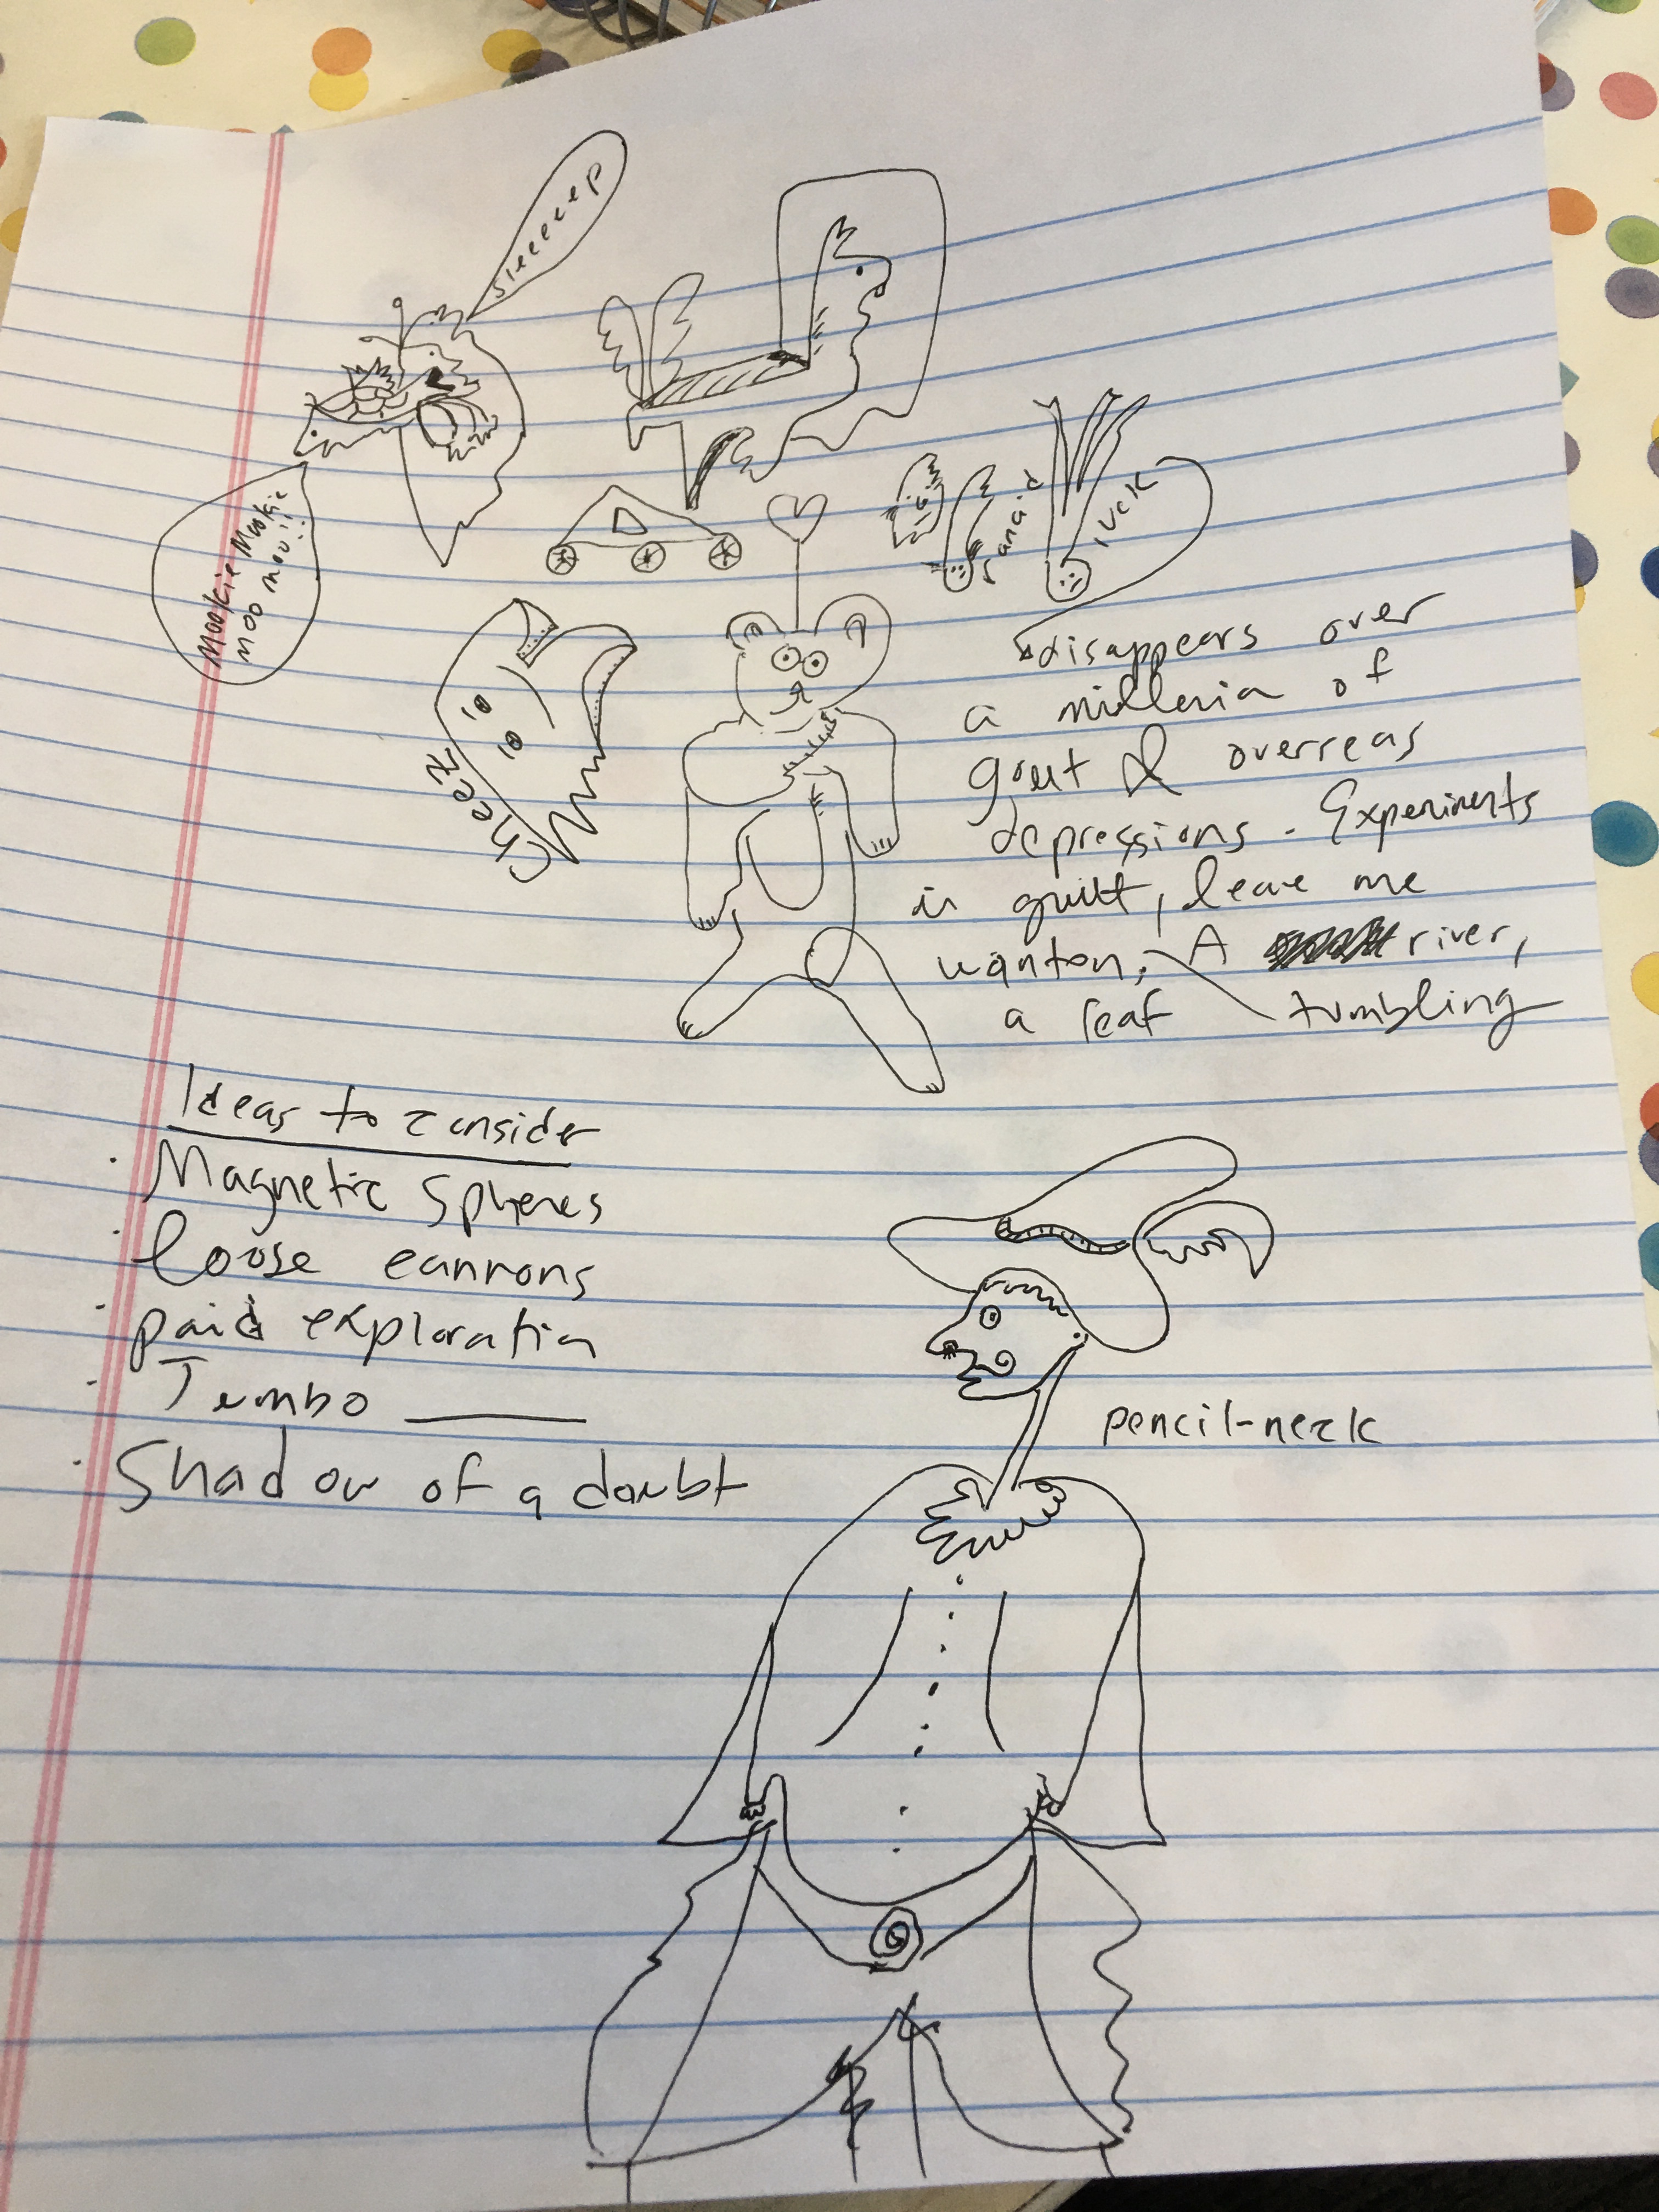 sleeeeep
Mookie Mookie
moo mou!!
rancid
luck
cheez
disappears over
a millenia of
gout & overseas
depressions. Experiments
in guilt, leave me
wanton; A river,
a leaf tumbling
Ideas to consider
· Magnetic Spheres
· loose cannons
· paid exploration
· Jumbo ______
· Shadow of a doubt
pencil-neck